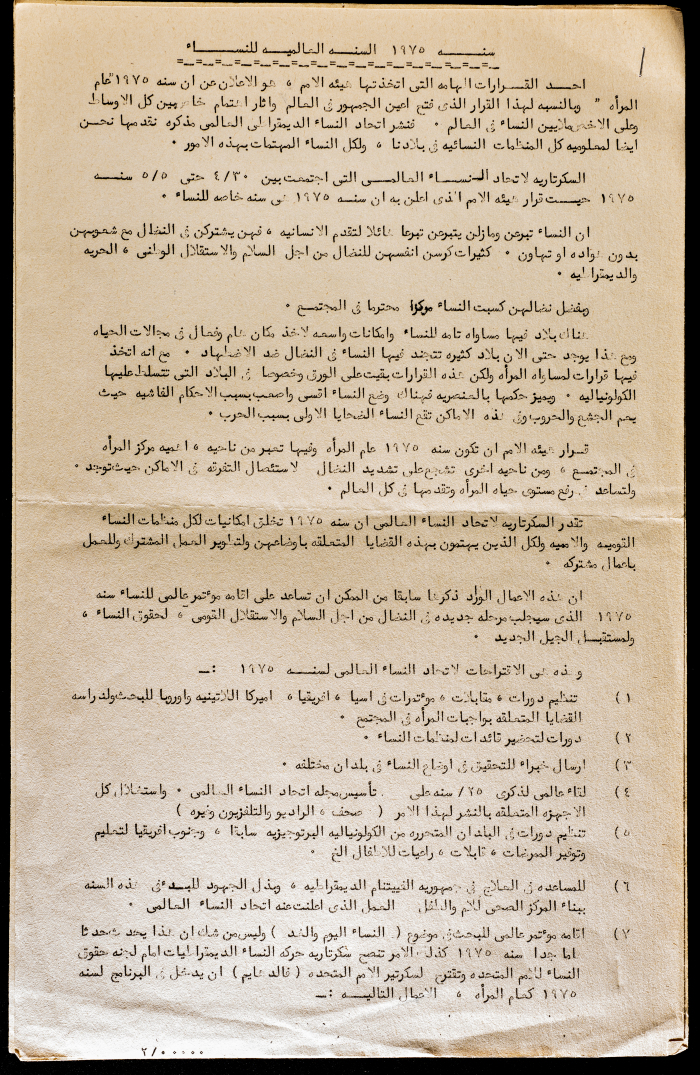 سنـــــه ١٩٧٥ السنـه العالميـه للنســـاء
احــد القــرارات الهامه التى اتخذتها هيئه الامم ، هو الاعلان عن ان سنه ١٩٧٥ "عام
المرأه " وبالنسبه لهذا القرار الذى فتح اعين الجمهور فى العالم واثار اهتمام خاص بين كل الاوساط
وعلى الاخص ملايين النساء فى العالم ٠ فنشر اتحاد النساء الديمقراطى العالمى مذكره نقدمها نحن
ايضا لمعلوميه كل المنظمات النسائيه فى بلادنا ، ولكل النساء المهتمات بهذه الامور ٠
السكرتاريه لاتحاد النســـاء العالمــى التى اجتمعت بين ٤/٣٠ حتى ٥/٥ سنـــه
١٩٧٥ حيــت قرار هيئه الامم الذى اعلن به ان سنــه ١٩٧٥ هى سنه خاصه للنساء ٠
ان النساء تبرعن ومازلن يتبرعن تبرعا هائلا لتقدم الانسانيه ، فهن يشتركن فى النضال مع شعوبهن
بدون هواده او تهاون ٠ كثيرات كرسن انفسهن للنضال من اجل السلام والاستقلال الوطنى ، الحريه
والديمقراطيه ٠
وبفضل نضالهن كسبت النساء مركزا محترما فى المجتمــع ٠
هناك بلاد فيها مساواه تامه للنساء وامكانات واسعه لاخذ مكان هام وفعال فى مجالات الحياه
ومع هذا يوجد حتى الان بلاد كثيره تتجند فيها النساء فى النضال ضد الاضطهاد ٠ مع انه اتخذ
فيها قرارات لمساواه المرأه ولكن هذه القرارات بقيت على الورق وخصوصا فى البلاد التى تتسلط عليها
الكولونياليه ٠ ويميز حكمها بالعنصريه فهناك وضع النساء اقسى واصعب بسبب الاحكام الفاشيه حيث
يعم الجشع والحروب وفى هذه الاماكن تقع النساء الضحايا الاولى بسبب الحرب ٠
قــرار هيئه الامم ان تكون سنه ١٩٧٥ عام المرأه وفيها تعبر من ناحيه ، اهميه مركز المرأه
فى المجتمــع ، ومن ناحيه اخرى تشجع على تشديد النضال لاستئصال التفرقه فى الاماكن حيث توجد ٠
ولتساعد فى رفع مستوى حياه المرأه وتقدمها فى كل العالم ٠
تقدر السكرتاريه لاتحاد النساء العالمى ان سنه ١٩٧٥ تخلق امكانيات لكل منظمات النساء
القوميه والامميه ولكل الذين يهتمون بهذه القضايا المتعلقه باوضاعهن ولتطوير العمل المشترك وللعمل
باعمال مشتركه ٠
ان هذه الاعمال الوارد ذكرها سابقا من الممكن ان تساعد على اقامه مؤتمر عالمى للنساء سنه
١٩٧٥ الذى سيجلب مرحله جديده فى النضال من اجل السلام والاستقلال القومى ، لحقوق النساء ،
ولمستقبــل الجيل الجديد ٠
وهذه هى الاقتراحات لاتحاد النساء العالمى لسنــه ١٩٧٥ :ــ
١) تنظيم دورات ، مقابلات ، مؤتمرات فى اسيا ، افريقيا ، اميركا اللاتينيه واوروبا للبحث ولدراسه
القضايا المتعلقه بواجبات المرأه فى المجتمع ٠
٢) دورات لتحضير قائدات لمنظمات النساء ٠
٣) ارسال خبراء للتحقيق فى اوضاع النساء فى بلدان مختلفه ٠
٤) لقاء عالمى لذكرى ٢٥/ سنه على تأسيس مجله اتحاد النساء العالمى ٠ واستغلال كل
الاجهزه المتعلقه بالنشر لهذا الامر ( صحف ، الراديو والتلفزيون وغيره )
٥) تنظيم دورات فى البلدان المتحرره من الكولونياليه البرتوجيزيه سابقا ، وجنوب افريقيا لتعليم
وتوفير الممرضات ، قابلات ، راعيات للاطفال الخ ٠
٦) للمساعده فى العلاج فى جمهوريه الفيتنام الديمقراطيه ، وبذل الجهود للبــدء فى هذه السنه
ببناء المركز الصحى للام والطفل العمل الذى اعلنت عنه اتحاد النساء العالمى ٠
٧) اقامه مؤتمر عالمى للبحث فى موضوع ( النساء اليوم والغد ) وليس من شك ان هذا يحد ث حدثا
هاما جدا سنه ١٩٧٥ كذلك الامر تنصح سكرتاريه حركه النساء الديمقراطيات امام لجنه حقوق
النساء للامم المتحده وتقترح لسكرتير الامم المتحده ( فالدهايم ) ان يدخل فى البرنامج لسنه
١٩٧٥ كعام المرأه ، الاعمال التاليــه :ــ
٢/٠٠٠٠٠